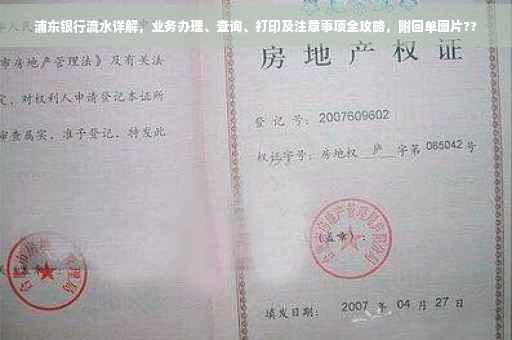 浦东银行流水详解，业务办理、查询、打印及注意事项全攻略，附回单图片??
人民
市房地产管理法》及有关法
定，对权利人申请登记本证所
审查属实，准予登记，特发此
房地产权证
登记号：2007609602
权证字号：房地权 庐 字第 065042 号
(盖章)：
填发日期：2007 年 04 月 27 日